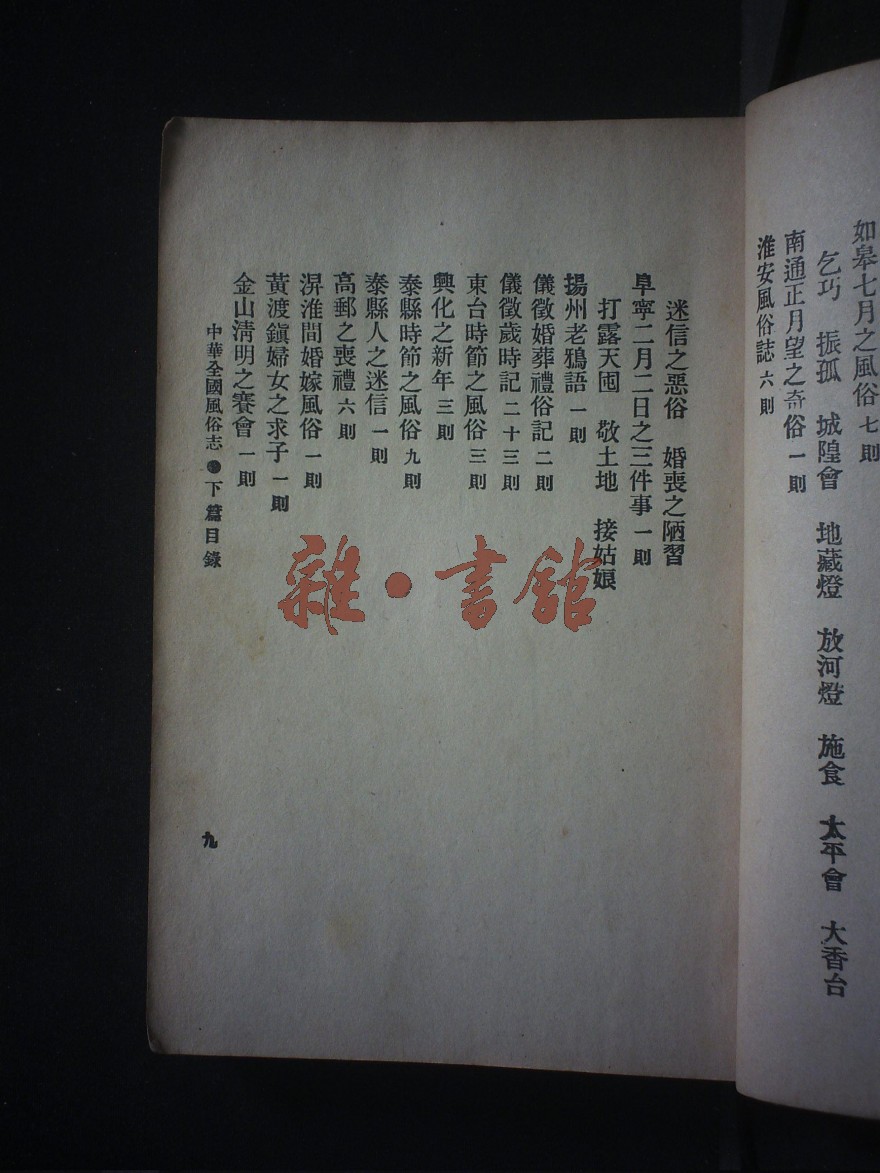 如皋七月之風俗 七則
乞巧 振孤 城隍會 地藏燈 放河燈 施食 太平會 大香台
南通正月望之奇俗 一則
淮安風俗誌 六則
迷信之惡俗 婚喪之陋習
阜寧二月二日之三件事 一則
打露天囤 敬土地 接姑娘
揚州老鴉語 一則
儀徵婚葬禮俗記 二則
儀徵歲時記 二十三則
東台時節之風俗 三則
興化之新年 三則
泰縣時節之風俗 九則
泰縣人之迷信 一則
高郵之喪禮 六則
湃淮間婚嫁風俗 一則
黃渡鎮婦女之求子 一則
金山清明之賽會 一則
中華全國風俗志 ● 下篇目錄
九
雜·書館